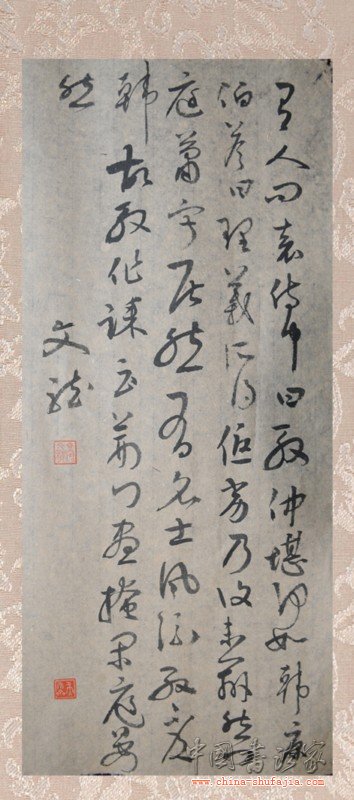 有人問袁侍中曰殷仲堪何如韓康
伯答曰理義所得優劣乃復未辨然門
庭蕭寂居然有名士風流殷不及
韓故殷作誄云荊門晝掩閑庭晏
然
文
中國書法家
www.china-shufajia.com